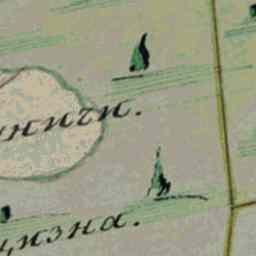 нничи.
цизна.